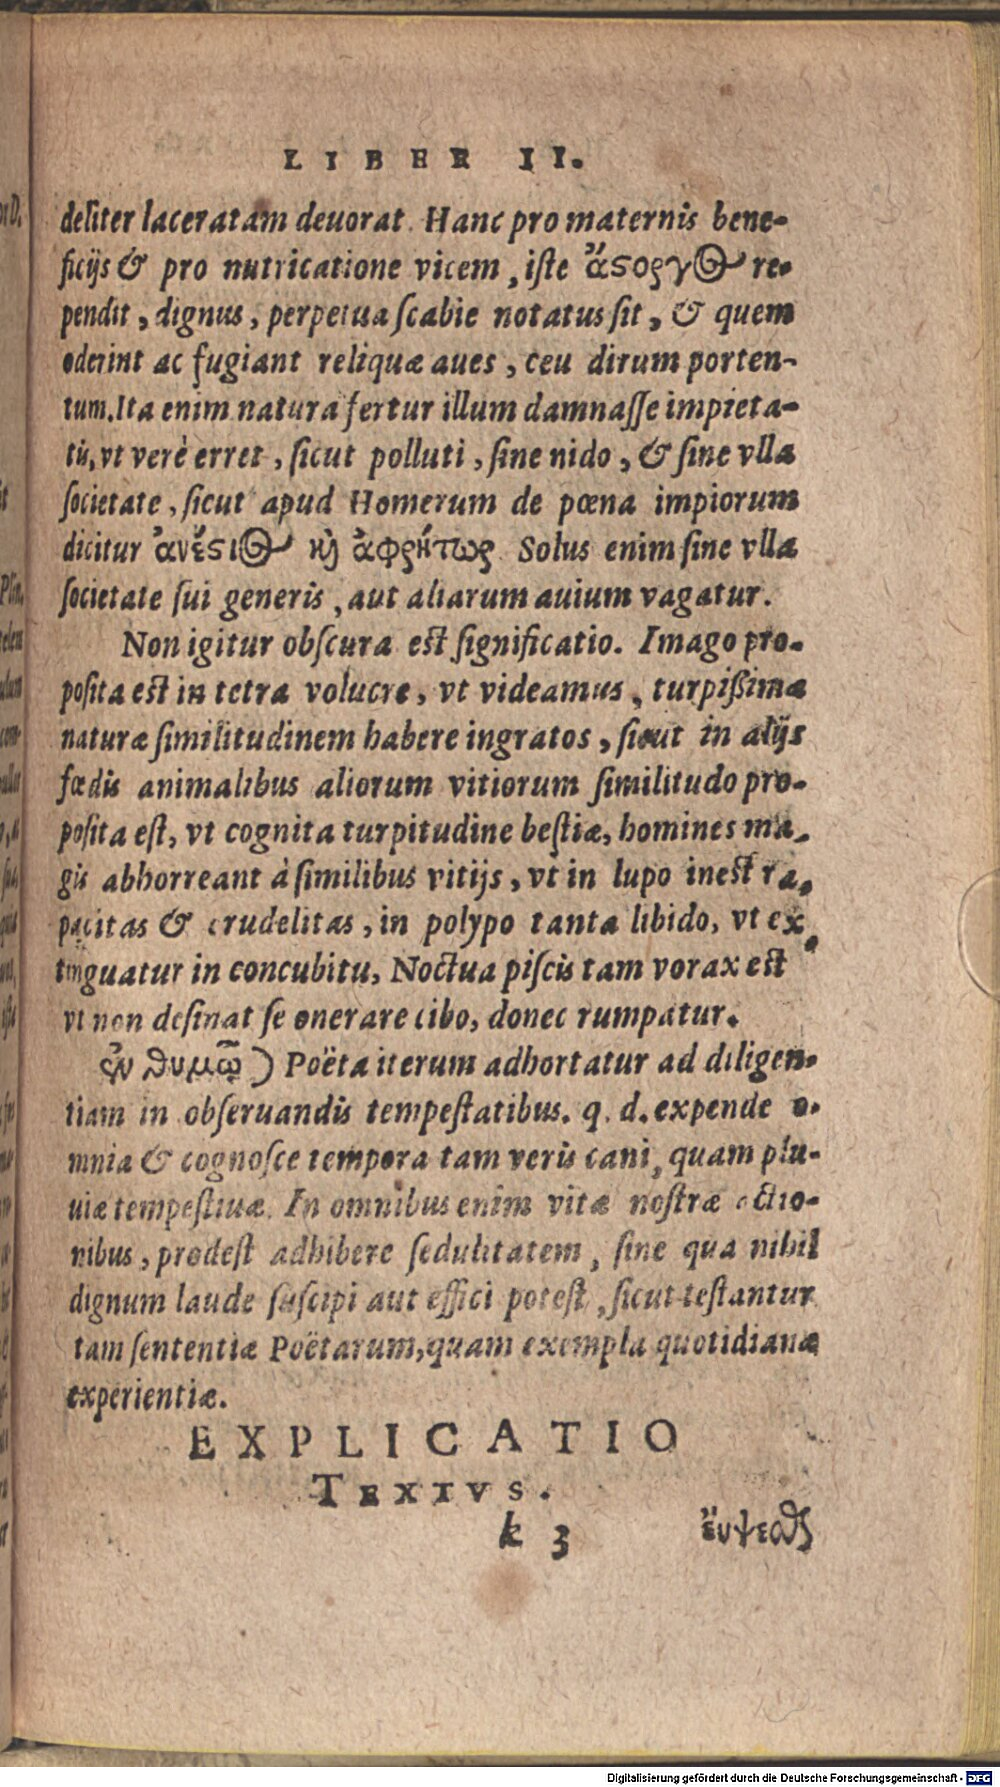 LIBER II.
deliter laceratam deuorat. Hanc pro maternis bene-
ficijs & pro nutricatione vicem, iste ἄϛοργος re-
pendit, dignus, perpetua scabie notatus sit, & quem
oderint ac fugiant reliquæ aues, ceu dirum porten-
tum. Ita enim natura fertur illum damnasse impieta-
tis, vt verè erret, sicut polluti, sine nido, & sine vlla
societate, sicut apud Homerum de pœna impiorum
dicitur ἀνέϛιος καὶ ἀφρήτωρ. Solus enim sine vlla
societate sui generis, aut aliarum auium vagatur.
Non igitur obscura est significatio. Imago pro-
posita est in tetra volucre, vt videamus, turpißimæ
naturæ similitudinem habere ingratos, sicut in alijs
fœdis animalibus aliorum vitiorum similitudo pro-
posita est, vt cognita turpitudine bestiæ, homines ma-
gis abhorreant à similibus vitijs, vt in lupo inest ra-
pacitas & crudelitas, in polypo tanta libido, vt ex
tinguatur in concubitu, Noctua piscis tam vorax est
vt non desinat se onerare cibo, donec rumpatur.
ἐν θυμῷ) Poëta iterum adhortatur ad diligen-
tiam in obseruandis tempestatibus. q. d. expende o-
mnia & cognosce tempora tam veris cani, quam plu-
uiæ tempestiuæ. In omnibus enim vitæ nostræ actio-
nibus, prodest adhibere sedulitatem, sine qua nihil
dignum laude suscipi aut effici potest, sicut testantur
tam sententiæ Poëtarum, quam exempla quotidianæ
experientiæ.
EXPLICATIO
TEXTVS.
k 3 ἕυψεαθ
Digitalisierung gefördert durch die Deutsche Forschungsgemeinschaft - DFG